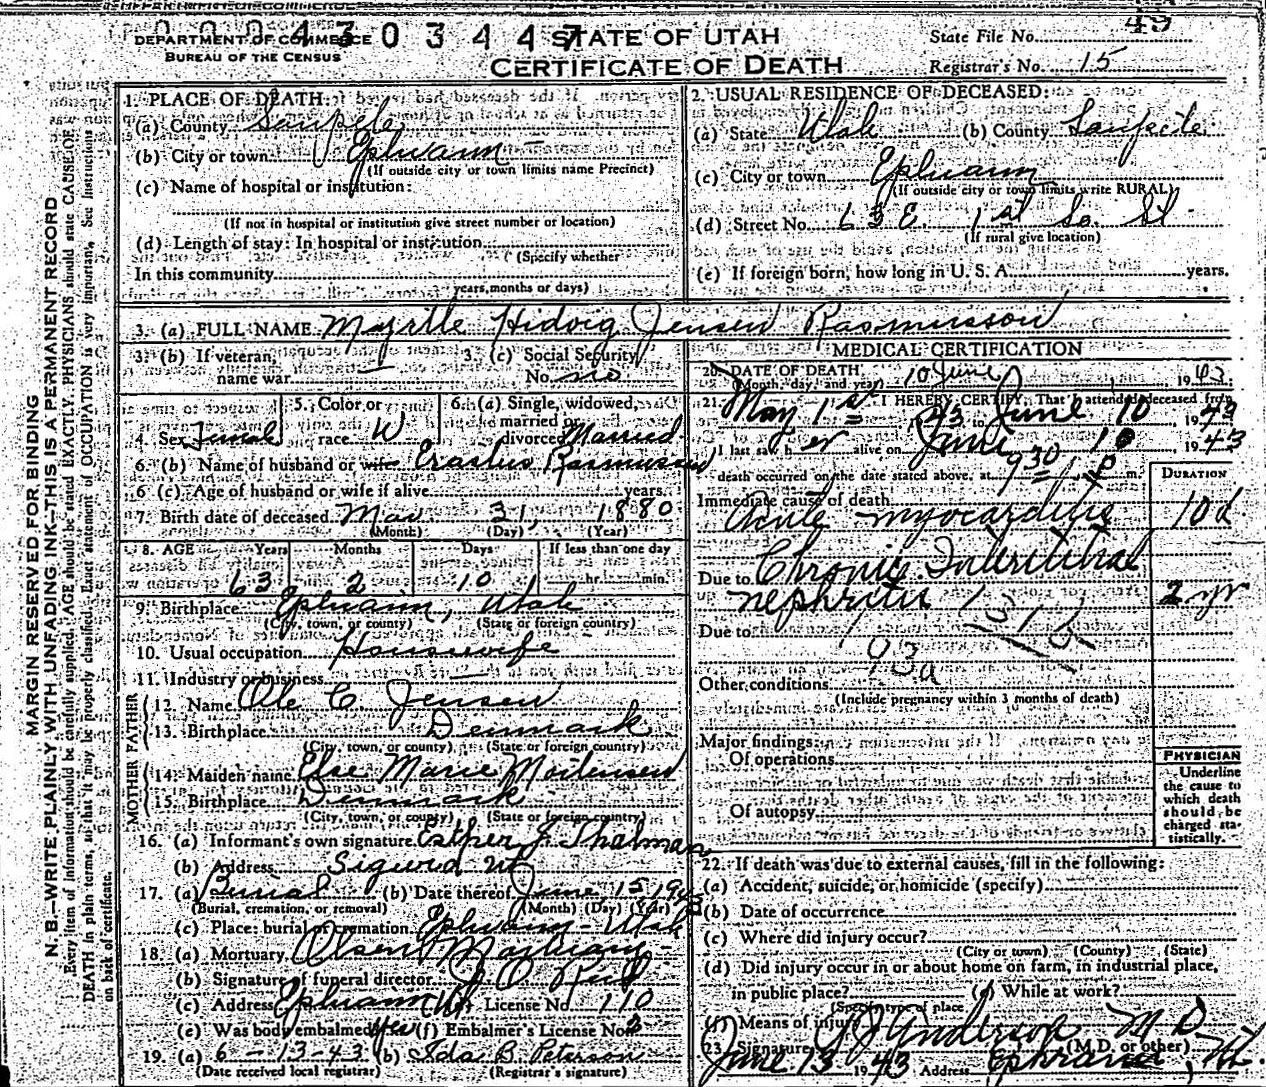 DEPARTMENT OF COMMERCE
BUREAU OF THE CENSUS
430344
STATE OF UTAH
CERTIFICATE OF DEATH
State File No. 49
Registrar's No. 15
MARGIN RESERVED FOR BINDING
N. B.—WRITE PLAINLY WITH UNFADING INK—THIS IS A PERMANENT RECORD
Every item of information should be carefully supplied. AGE should be stated EXACTLY. PHYSICIANS should state CAUSE OF
DEATH in plain terms, so that it may be properly classified. Exact statement of OCCUPATION is very important. See Instructions
on back of certificate.
1. PLACE OF DEATH:
(a) County Sanpete
(b) City or town Ephraim
(If outside city or town limits name Precinct)
(c) Name of hospital or institution:
(If not in hospital or institution give street number or location)
(d) Length of stay: In hospital or institution
(Specify whether
In this community
years, months or days)
2. USUAL RESIDENCE OF DECEASED:
(a) State Utah (b) County Sanpete
(c) City or town Ephraim
(If outside city or town limits write RURAL)
(d) Street No. 63 E. 1st So. St
(If rural give location)
(e) If foreign born, how long in U. S. A. years.
3. (a) FULL NAME Myrtle Hidvig Jensen Rasmusson
3. (b) If veteran,
name war
3. (c) Social Security
No. no
4. Sex Female
5. Color or
race W
6. (a) Single, widowed,
married or
divorced Married
6. (b) Name of husband or wife Erastus Rasmussen
6 (c). Age of husband or wife if alive years.
7. Birth date of deceased Mar 31, 1880
(Month) (Day) (Year)
8. AGE Years Months Days If less than one day
63 2 10 hr. min.
9. Birthplace Ephraim, Utah
(City, town, or county) (State or foreign country)
10. Usual occupation Housewife
11. Industry or business
FATHER
12. Name Ole C. Jensen
13. Birthplace Denmark
(City, town, or county) (State or foreign country)
MOTHER
14. Maiden name Else Marie Mortensen
15. Birthplace Denmark
(City, town, or county) (State or foreign country)
16. (a) Informant's own signature Esther J. Thalman
(b) Address Sigurd Ut
17. (a) Burial (b) Date thereof June 15 1943
(Burial, cremation, or removal) (Month) (Day) (Year)
(c) Place: burial or cremation Ephraim - Utah
18. (a) Mortuary Olsen Mortuary -
(b) Signature of funeral director
(c) Address Ephraim Ut License No. 110
(e) Was body embalmed Yes (f) Embalmer's License No.
19. (a) 6-13-43 (b) Ida B. Peterson
(Date received local registrar) (Registrar's signature)
MEDICAL CERTIFICATION
20. DATE OF DEATH
(Month, day, and year) 10 June 1943
21. I HEREBY CERTIFY, That I attended deceased from
May 1st, 43 to June 10, 1943
I last saw her alive on June 10 1943
death occurred on the date stated above, at 9 30 P m.
DURATION
Immediate cause of death
Acute myocarditis 10 d
Due to Chronic Interstitial
nephritis 2 yr
Due to
93a
Other conditions
(Include pregnancy within 3 months of death)
Major findings:
Of operations
Of autopsy
PHYSICIAN
Underline
the cause to
which death
should be
charged sta-
tistically.
22. If death was due to external causes, fill in the following:
(a) Accident, suicide, or homicide (specify)
(b) Date of occurrence
(c) Where did injury occur?
(City or town) (County) (State)
(d) Did injury occur in or about home on farm, in industrial place,
in public place? (e) While at work?
(Specify type of place)
(f) Means of injury
23. Signature Anderson M D
(M.D. or other)
June 13 1943 Address Ephraim, Ut.